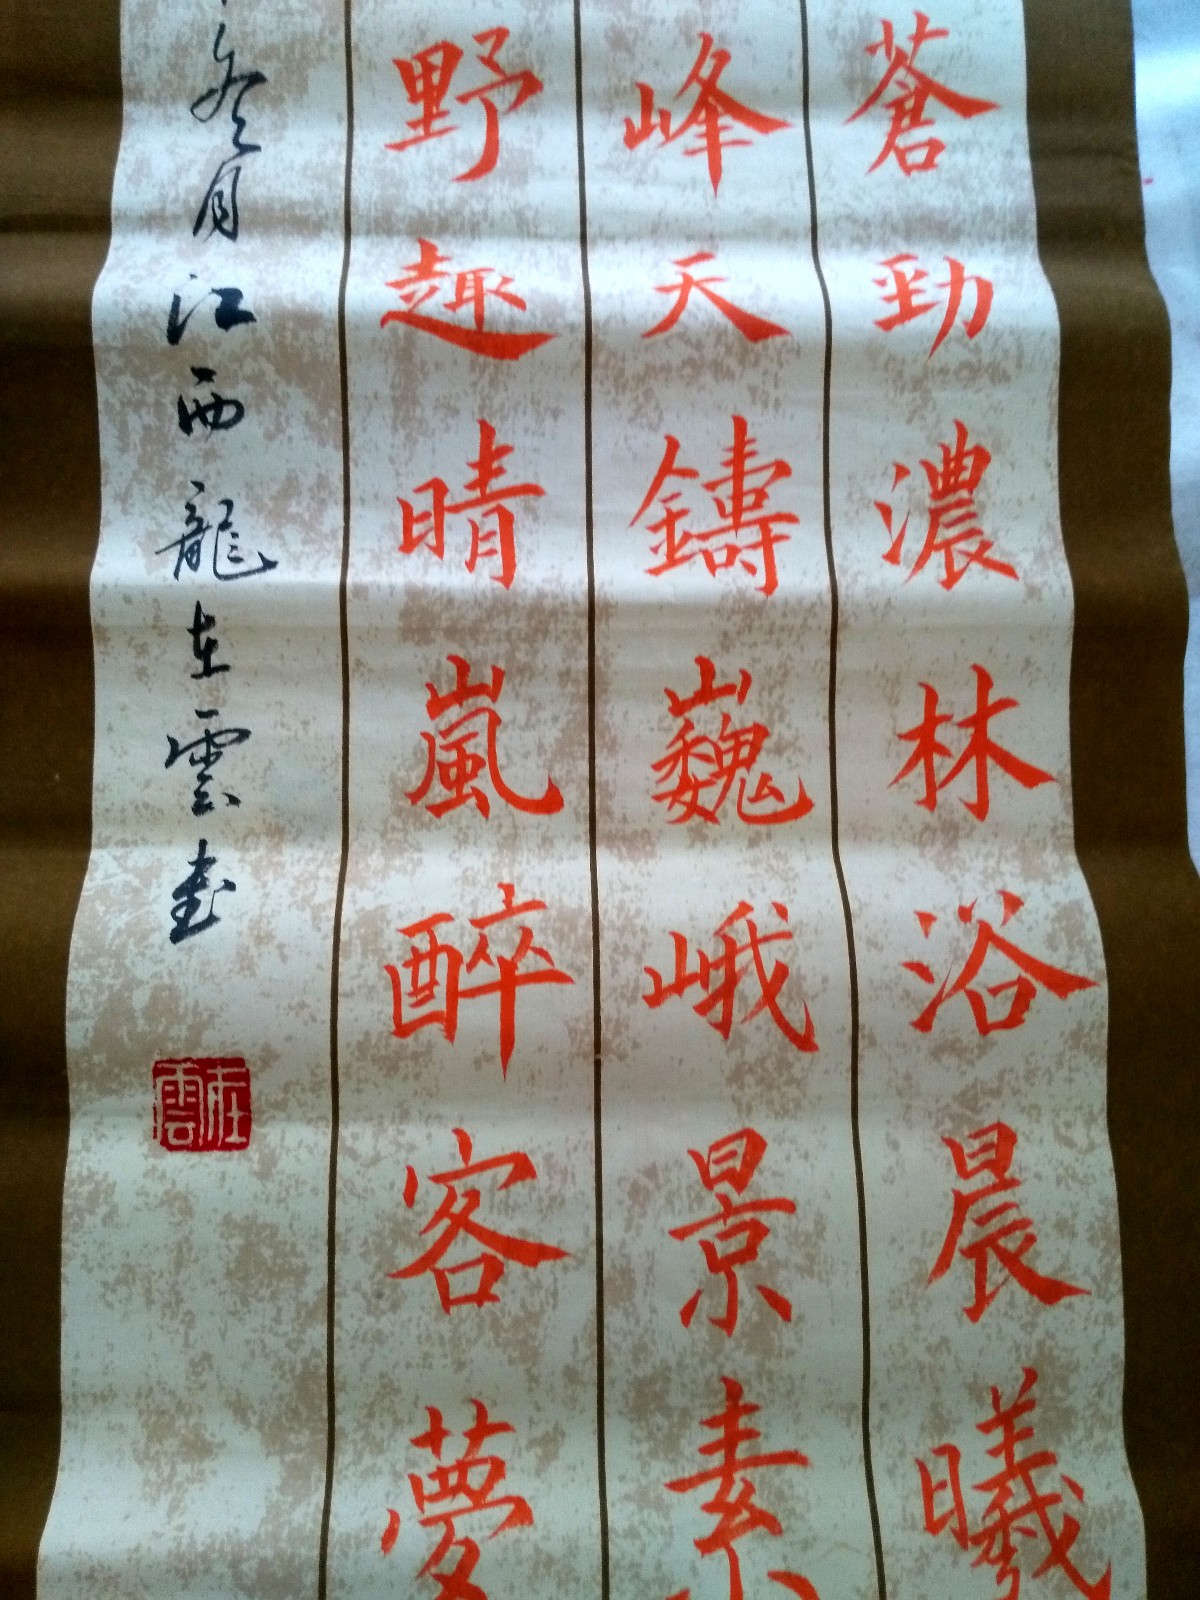 蒼勁濃林浴晨曦
峰天鑄巍峨景素
野趣晴嵐醉客夢
冬月江西龍在雲書
在雲